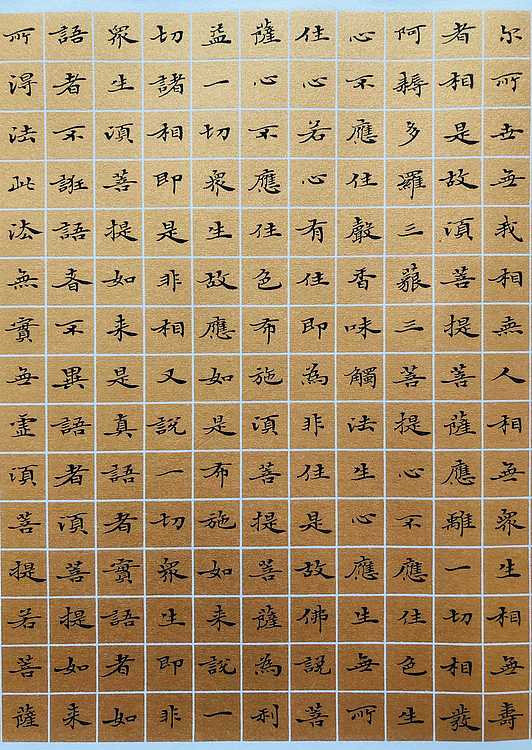 尔所世無我相無人相無眾生相無壽
者相是故須菩提菩薩應離一切相發
阿耨多羅三藐三菩提心不應住色生
心不應住聲香味觸法生心應生無所
住心若心有住即為非住是故佛說菩
薩心不應住色布施須菩提菩薩為利
益一切眾生故應如是布施如来說一
切諸相即是非相又說一切眾生即非
眾生須菩提如来是真語者實語者如
語者不誑語者不異語者須菩提如来
所得法此法無實無虛須菩提若菩薩